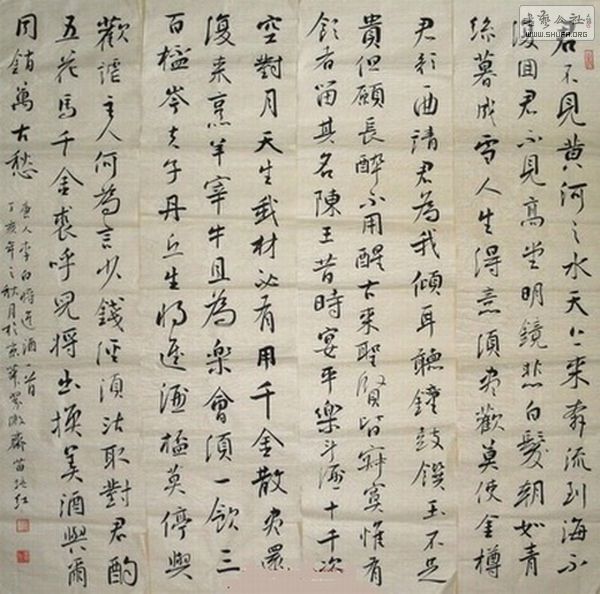 書藝公社
WWW.SHUFA.ORG
君不見黃河之水天上來奔流到海不
復回君不見高堂明鏡悲白髮朝如青
絲暮成雪人生得意須盡歡莫使金樽
君歌一曲請君為我傾耳聽鐘鼓饌玉不足
貴但願長醉不用醒古來聖賢皆寂寞惟有
飲者留其名陳王昔時宴平樂斗酒十千恣
空對月天生我材必有用千金散盡還
復來烹羊宰牛且為樂會須一飲三
百杯岑夫子丹丘生將進酒杯莫停與
歡謔主人何為言少錢徑須沽取對君酌
五花馬千金裘呼兒將出換美酒與爾
同銷萬古愁
唐人李白將進酒一首
丁亥年之秋月於京華翠微齋苗